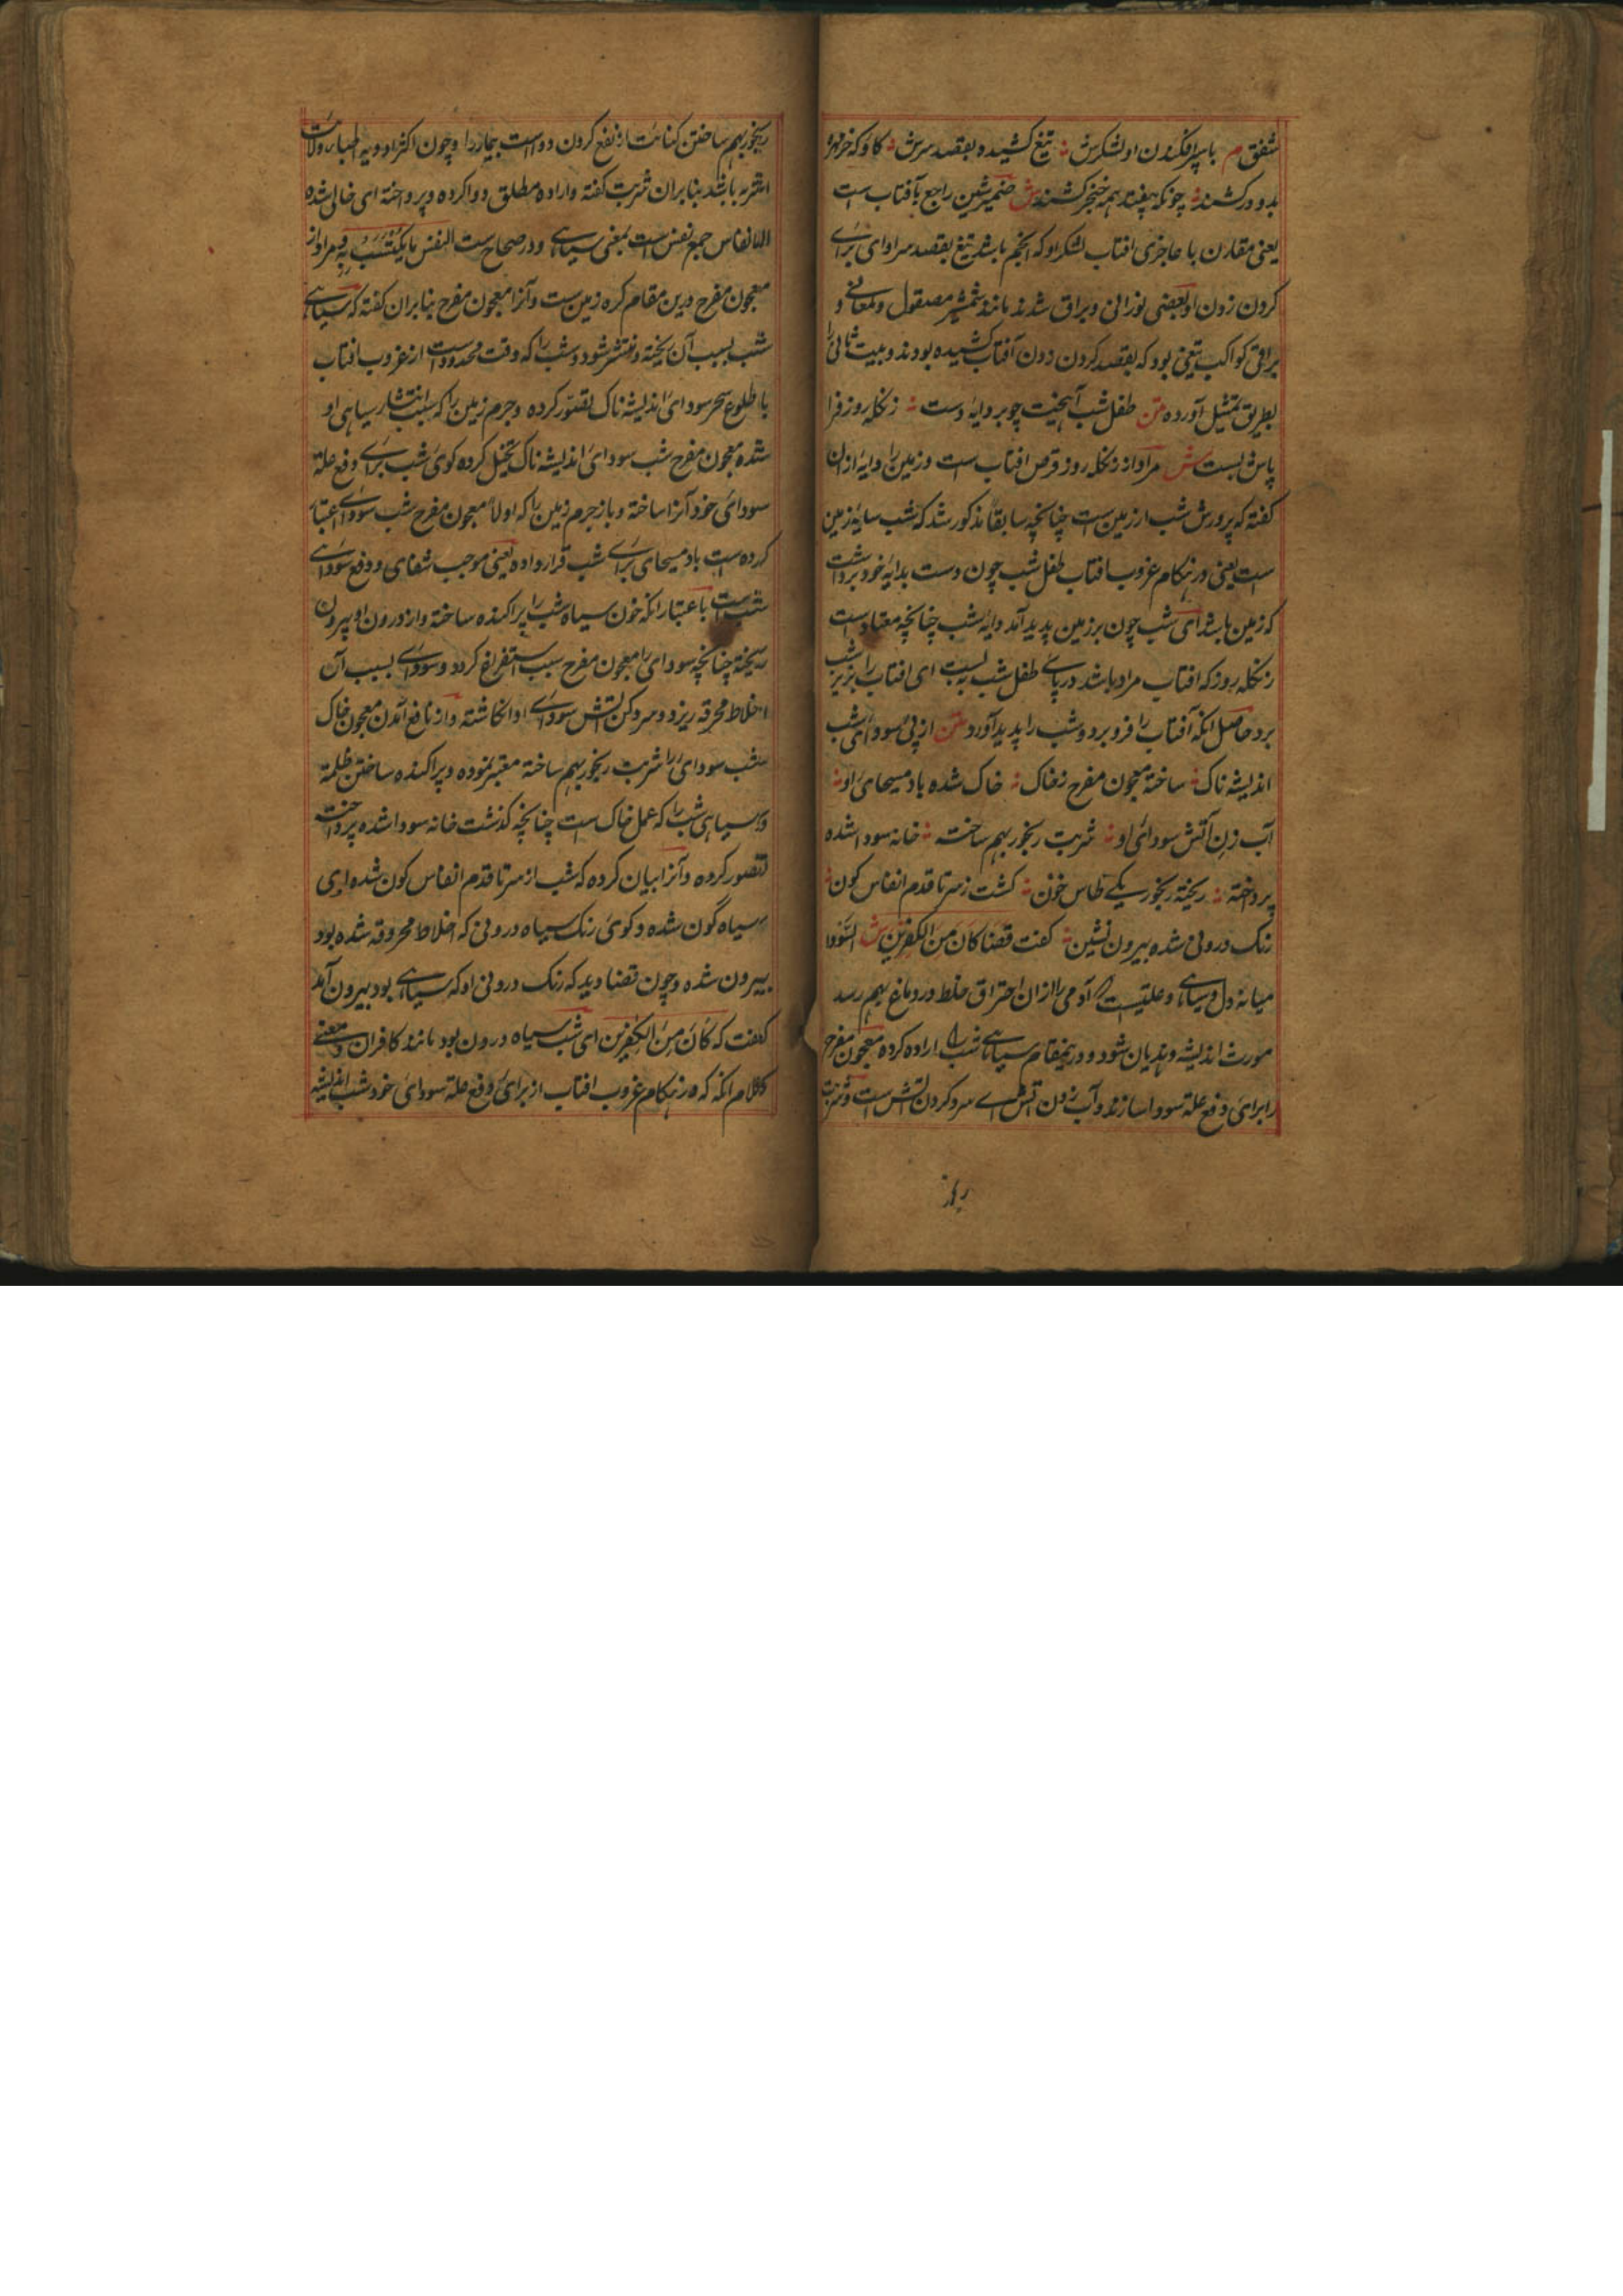 شفق م با سپر افکندن او لشکرش تیغ کشیده بقصد سرش کاو که خر مهره
بدو در کشند چونکه بیفتد همه خنجر کشند ش ضمیر شین راجع بآفتاب است
یعنی مقارن با عاجزی افتاب لشکر او که انجم باشد تیغ بقصد سر او ای برای
کردن زدن او یعنی نورانی و براق شدند مانند شمشیر مصقول و لمعانی و
براقی کواکب تیغی بود که بقصد کردن زدن آفتاب کشیده بودند و بیت ثانی را
بطریق تمثیل آورده متن طفل شب آهیخت چو بر دایه دست زنکله روز فرا
پاش بست ش مراد از زنکله روز قرص افتاب است و زمین را دایه ازان
کفته که پرورش شب از زمین ست چنانچه سابقا مذکور شد که شب سایه زمین
ست یعنی در هنکام غروب افتاب طفل شب چون دست بدایه خود برداشت
که زمین باشد ای شب چون بر زمین پدید آمد دایه شب چنانچه معتاد است
زنکله روز که افتاب مراد باشد در پای طفل شب به بست ای افتاب را بزیر شب
برد حاصل انکه آفتاب را فرو برد و شب را پدید آورد متن از پی سودای شب
اندیشه ناک ساخته معجون مفرح ز خاک خاک شده باد مسیحای او
آب زن آتش سودای او شربت رنجور بهم ساخته خانه سودا شده
پرداخته ریخته رنجور یکی طاس خون کشت ز سر تا قدم انفاس کون
رنک درونی شده بیرون نشین کفت قضا کان من الکفرین ش السودا
میانه دل و سیاهی و علتیست که آدمی را ازان احتراق خلط در دماغ بهم رسد
مورث اندیشه و هذیان شود و درینمقام سیاهی شب را اراده کرده معجون مفرح
را برای دفع علة سودا سازند و آب زدن آتش سرد کردن آتش است و شربت
رنجور بهم ساختن کنایت از نفع کردن دواست بیمار را و چون اکثر ادویه اطبا
اشربه باشد بنابران شربت کفته و اراده مطلق دوا کرده و پرداخته ای خالی شده
الانفاس جمع نفس است بمعنی سیاهی و در صحاح ست النفس ما یکتتب به و مراد از
معجون مفرح درین مقام کره زمین ست و آنرا معجون مفرح بنابران کفته که سیاهی
شب بسبب آن ریخته و منتشر شود و شب را که وقت محدود است از غروب افتاب
با طلوع سحر سودای اندیشه ناک تصور کرده و جرم زمین را که سبب انتشار سیاهی او
شده معجون مفرح شب سودای اندیشه ناک تخیل کرده کوی شب برای دفع علة
سودای خود آنرا ساخته و باز جرم زمین را که اولا معجون مفرح شب سودای اعتبار
کرده ست باد مسیحای برای شب قرار داده یعنی موجب شفای و دفع سودای
شب است باعتبار انکه خون سیاه شب را پراکنده ساخته و از درون او بیرون
ریخته چنانچه سودای را معجون مفرح سبب استفراغ کردد و سودای بسبب آن
اخلاط محرقه ریزد و سرد کن آتش سودای او انکاشته و از نافع آمدن معجون خاک
شب سودای را شربت رنجور بهم ساخته معتبر نموده و پراکنده ساختن ظلمة
و سیاهی شب را که عمل خاک است چنانچه کذشت خانه سودا شده پرداخت
تصور کرده و آنرا بیان کرده که شب از سر تا قدم انفاس کون شده ای
سیاه گون شده و کوی رنک سیاه درونی که اخلاط محروقه شده بود
بیرون شده و چون قضا دید که رنک درونی او که سیاهی بود بیرون آمد
کفت که کان من الکفرین ای شب سیاه درون بود مانند کافران و معنی
کلام انکه که در هنکام غروب افتاب از برای دفع علة سودای خود شب اندیشه